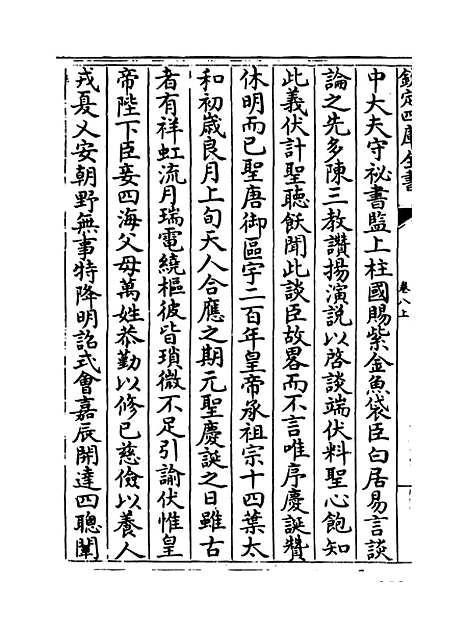 欽定四庫全書
卷八上
中大夫守祕書監上柱國賜紫金魚袋臣白居易言談
論之先多陳三教讚揚演說以啓談端伏料聖心飽知
此義伏計聖聽飫聞此談臣故畧而不言唯序慶誕贊
休明而已聖唐御區宇二百年皇帝承祖宗十四葉太
和初歲良月上旬天人合應之期元聖慶誕之日雖古
者有祥虹流月瑞電繞樞彼皆瑣微不足引諭伏惟皇
帝陛下臣妾四海父母萬姓恭勤以修已慈儉以養人
戎夏乂安朝野無事特降明詔式會嘉辰開達四聰闡